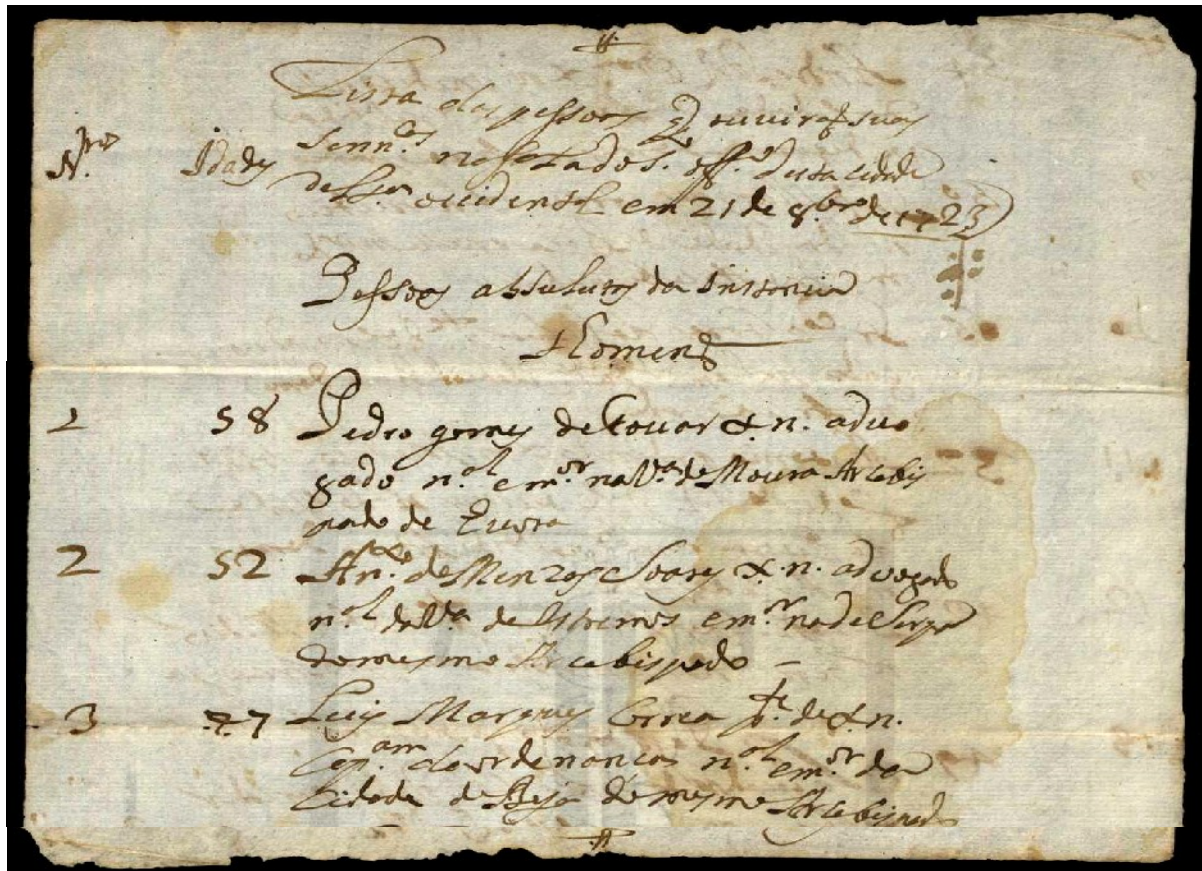 Lista das pessoas q ouvirão suas
N.ros Idades Senn.cas na salla do S. off.o desta cidade
de Lx.a occidental em 21 de 8bro de 1723
Pessoas absolutas da instancia
Homens
1 58 Pedro gomes de Tovar x. n. advo
gado n.al e m.or na V.a de Moura Arcebis
pado de Evora
2 52 An.to de Menzas Soares x. n. advogado
n.al da V.a de Estremos e m.or na de Serpa
do mesmo Arcebispado
3 77 Luis Marques Correa p.te de x. n.
Cap.am da ordenança n.al e m.or da
Cidade de Beja do mesmo Arcebispado